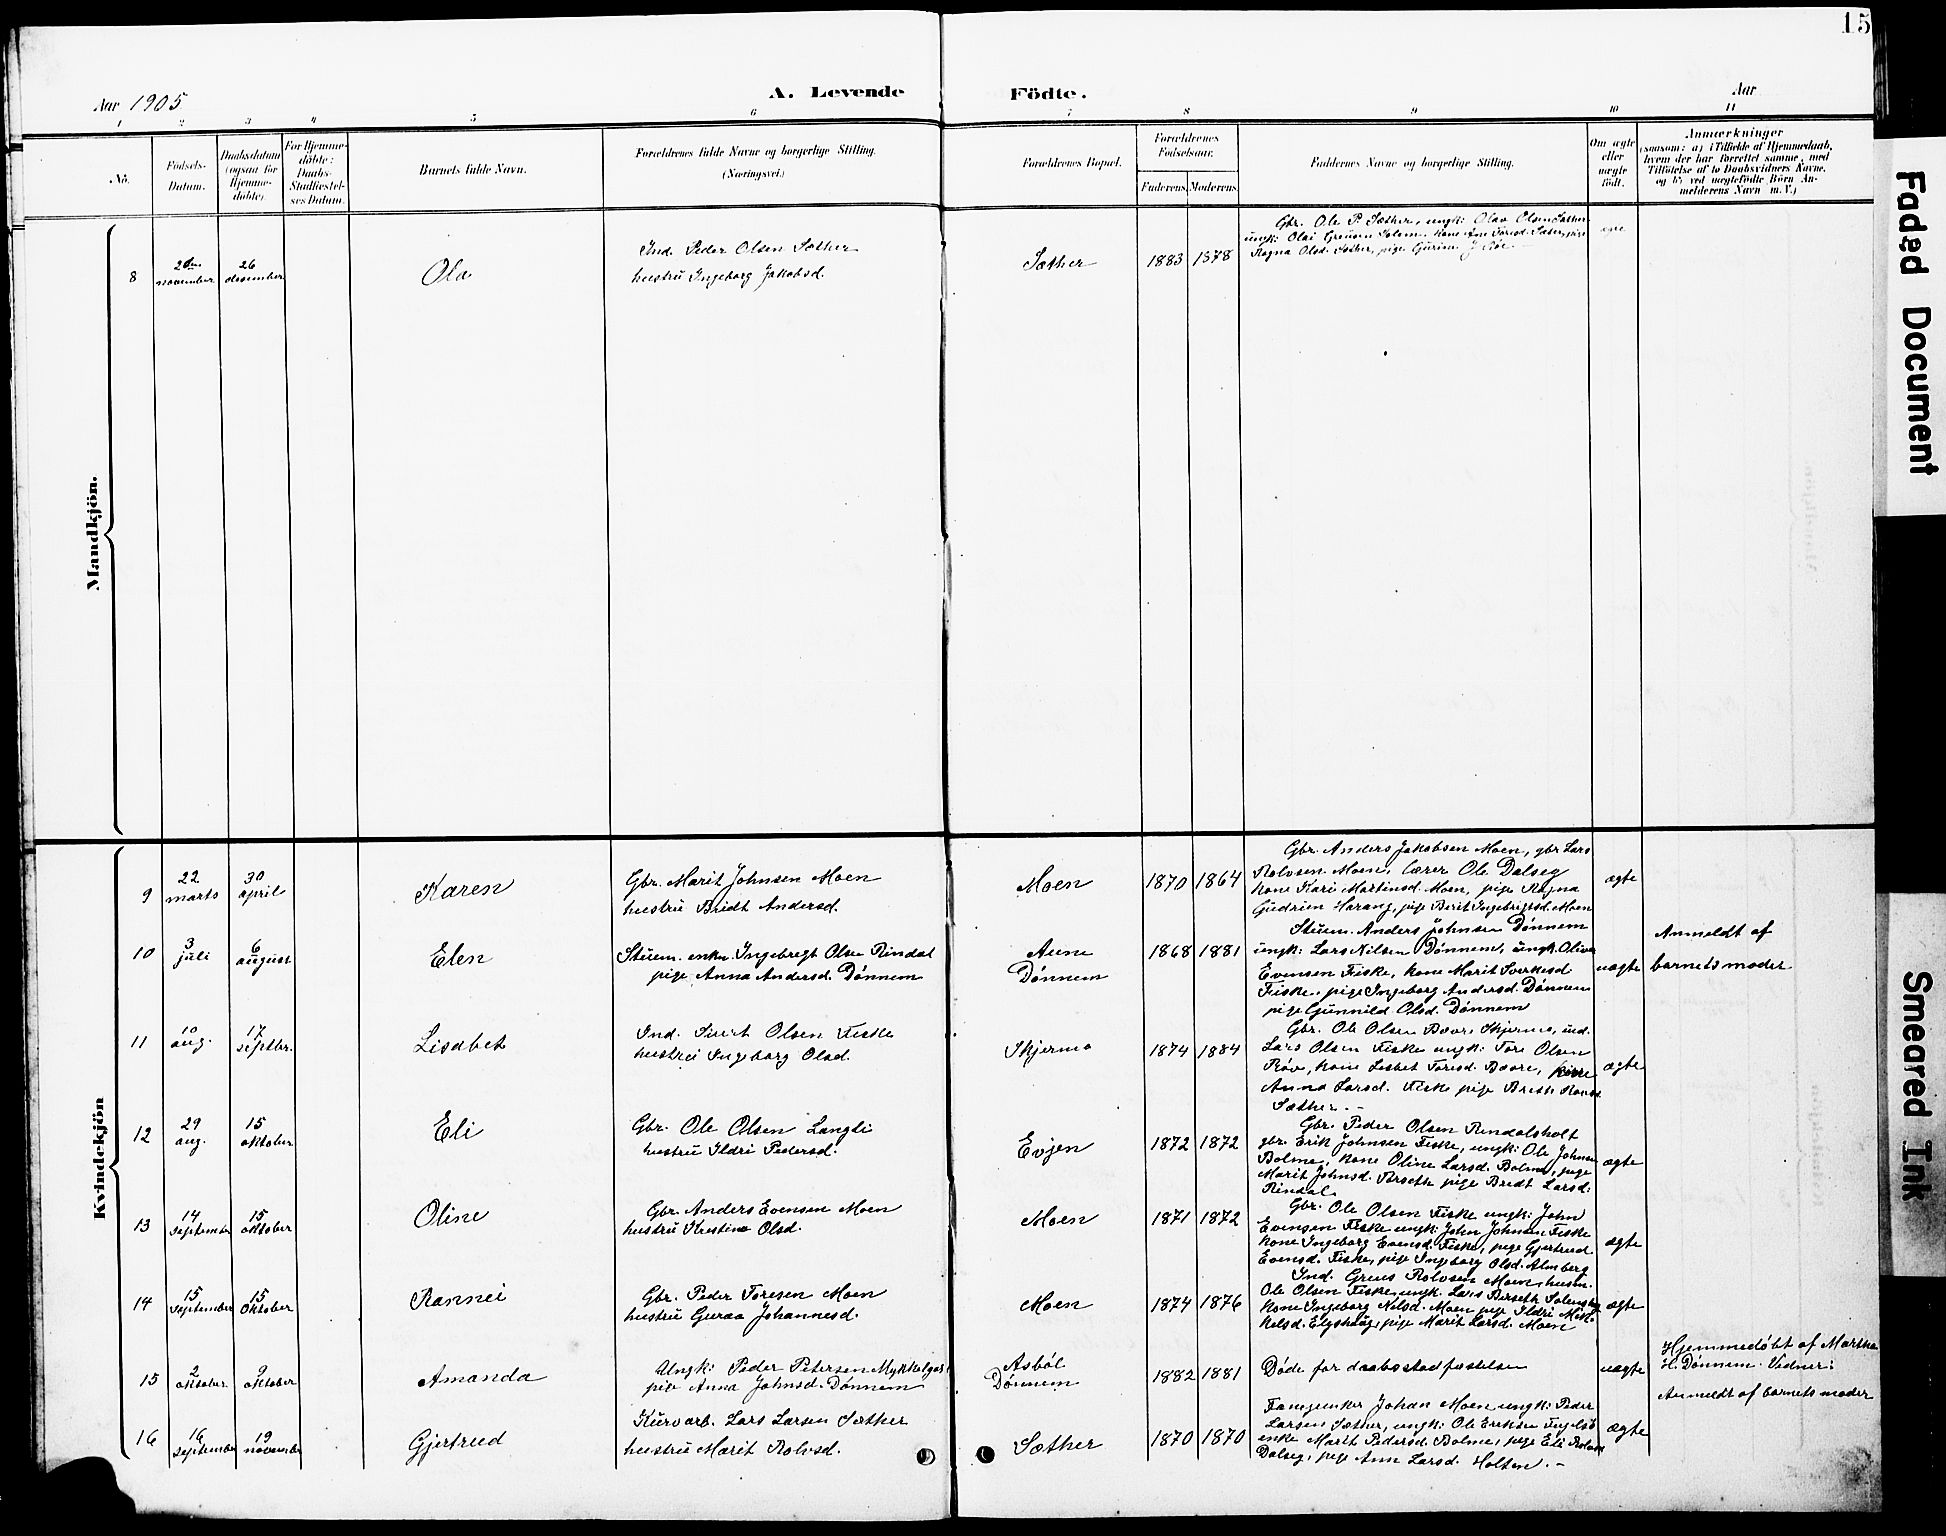 15
Aar 1905
A. Levende Födte.
Aar
1 2 3 4 5 6 7 8 9 10 11
No.
Födsels-
Datum.
Daabsdatum
(ogsaa for
Hjemme-
döbte).
For Hjemme-
döbte:
Daabs-
Stadfæstel-
ses Datum.
Barnets fulde Navn.
Forældrenes fulde Navne og borgerlige Stilling.
(Næringsvei.)
Forældrenes Bopæl.
Forældrenes
Födselsaar.
Faderens. Moderens.
Faddernes Navne og borgerlige Stilling.
Om ægte
eller
uægte
födt.
Anmærkninger
(saasom: a) i Tilfælde af Hjemmedaab,
hvem der har forrettet samme, med
Tilföielse af to Daabsvidners Navne,
og b) ved uægtefödte Börn An-
melderens Navn m. V.)
Mandkjön.
8
november
26
desember
Ola
Ind. Peder Olsen Sæther
hustru Ingeborg Jakobsd.
Sæther
1883 1878
Gbr. Ole P. Sæther, ungk: Olav Olsen Sæther
ungk: Olai Solem, kone
Ragna Olsd. Sæther, pige Gurine
Kvindekjön
9
22
marts
30
april
Karen
Gbr. Marit Johnsen Moen
hustru Bridt Andersd.
Moen
1870 1864
Gbr. Anders Jakobsen Moen, gbr Lars
Rolvsen Moen, lærer Ole Dalseg
kone Kari Martinsd. Moen, pige Ragna
Gudrun Harang, pige Berit Ingebrigtsd. Moen
ægte
10
3
juli
6
august
Elen
Stuem. enkm. Ingebregt Olsen Rindal
pige Anna Andersd. Dønnem
Aune
Dønnem
1868 1881
Stuem. Anders Johnsen Dønnem
ungk: Lars Nilsen Dønnem, ungk. Oliver
Evensen Fiske, kone Marit Sverkesd
Fiske, pige Ingeborg Andersd. Dønnem
pige Gunnild Olsd. Dønnem
uægte
Anmeldt af
barnets moder
11
10
aug.
17
septbr.
Lisabet
Ind. Sivert Olsen Fiske
hustru Ingeborg Olsd.
Skjermo
1874 1884
Gbr. Ole Olsen Bævre Skjermo, ind.
Lars Olsen Fiske ungk: Tore Olsen
Røv, kone Lisbet Toresd. Bævre,
Anna Larsd. Fiske pige Brith
Sæther. -
ægte
12
29
aug.
15
oktober
Eli
Gbr. Ole Olsen Langli
hustru Ildri Pedersd.
Evjen
1872 1872
Gbr. Peder Olsen Rindalsholt
gbr. Erik Johnsen Fiske, ungk: Ole Johnsen
Bolme, kone Oline Larsd. Bolme, pige
Marit Johnsd. pige Bridt Larsd.
Rindal
ægte
13
14
September
15
oktober
Oline
Gbr. Anders Evensen Moen
hustru Kristine Olsd.
Moen
1871 1872
Gbr. Ole Olsen Fiske ungk: John
Evensen Fiske ungk: John Johnsen Fiske
kone Ingeborg Evensd. Fiske, pige Gjertrud
Evensd. Fiske, pige Ingeborg Olsd. Almberg
ægte
14
15
September
15
Oktober
Rannei
Gbr. Peder Toresen Moen
hustru Guraa Johannesd.
Moen
1874 1876
Ind. Greus Rolvsen Moen, husm.
Ole Olsen Fiske, ungk. Lars Berseth
kone Ingeborg Nilsd. Moen pige Ildri Mik-
kelsd. Elgshaug, pige Marit Larsd. Moen
ægte
15
2
oktober
9
oktober
Amanda
Ungk: Peder Petersen
pige Anna Johnsd. Dønnem
Asbøl
Dønnem
1882 1881
Døde før daabsstadfæstelsen
uægte
Hjemmedøbt af Martha
H. Dønnem. Vidner:
Anmeldt af barnets moder
16
16
September
19
november
Gjertrud
Kurvarb. Lars Larsen Sæther
hustru Marit Rolvsd.
Sæther
1870 1870
Johan Moen ungk: Peder
Larsen Sæther, ungk: Ole Eriksen
enke Marit Pedersd. Bolme, pige Eli
Dalseg, pige Ann Larsd. Holten. -
ægte
Faded Document
Smeared Ink